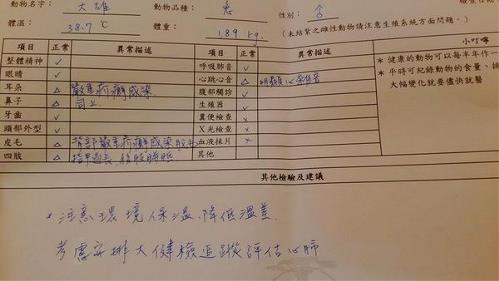 動物名字： 大雄 動物品種： 性別：
體溫： 38.7 ℃ 體重： 1.89 kg （未結紮之雄性動物請注意生殖系統方面問題。）
項目 正常 異常描述 項目 正常 異常描述 小叮嚀
整體精神 ✓ 呼吸肺音 ✓ ＊健康的動物可以每半年作一
眼睛 ✓ 心跳心音 △ 明顯心雜音 ＊平時可紀錄動物的食量、排
耳朵 △ 散在疥癬感染 腹部觸診 ✓ 大幅變化就要儘快就醫
鼻子 △ 同上 生殖器 ✓
牙齒 ✓ 糞便檢查 ×
頭部外型 ✓ X光檢查 ×
皮毛 △ 背部散在疥癬感染 血液抹片 ×
四肢 △ 指甲過長、 其他
其他檢驗及建議
＊注意環境保溫、降低溫差、
考慮安排大健檢追蹤評估心肺